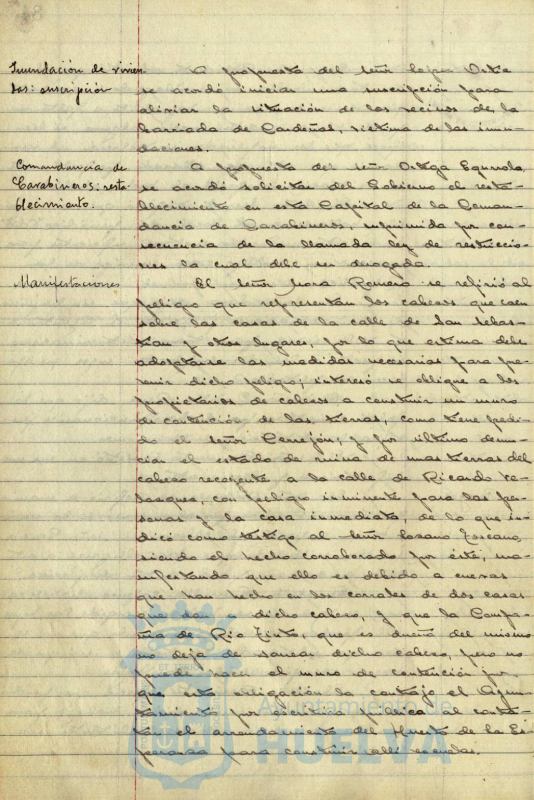 Inundación de vivien
das: suscripción
A propuesta del señor López Ortiz
se acordó iniciar una suscripción para
aliviar la situación de los vecinos de la
barriada de Cardeñas, víctima de las inun-
daciones.
Comandancia de
Carabineros: resta-
blecimiento.
A propuesta del señor Ortega
se acordó solicitar del Gobierno el resta-
blecimiento en esta Capital de la Coman-
dancia de Carabineros, suprimida por con-
secuencia de la llamada ley de restriccio-
nes la cual debe ser derogada.
Manifestaciones
El señor Mora Romero se refirió al
peligro que representan los cabezos que caen
sobre las casas de la calle de San Sebas-
tián y otros lugares, por lo que estima debe
adoptarse las medidas necesarias para pre-
venir dicho peligro; interesó se obligue a los
propietarios de cabezos a construir un muro
de contención de las tierras, como tiene pedi-
do el señor Cerrejón; y por último denun-
cian el estado de ruina de unas tierras del
cabezo recayente a la calle de Ricardo Ve-
lázquez, con peligro inminente para las per-
sonas y la casa inmediata, de lo que in-
dicó como testigo al señor Lozano Toscano,
siendo el hecho corroborado por éste, ma-
nifestando que ello es debido a cuevas
que han hecho en los corrales de dos casas
que dan a dicho cabezo, y que la Compa-
ñía de Rio Tinto, que es dueña del mismo
no deja de sanear dicho cabezo, pero no
puede hacer el muro de contención por-
que esta obligación la contrajo el Ayun-
tamiento por escritura pública al contra-
tar el arrendamiento del Huerto de la Es-
peranza para construir allí escuelas.
Ayuntamiento de
HUELVA